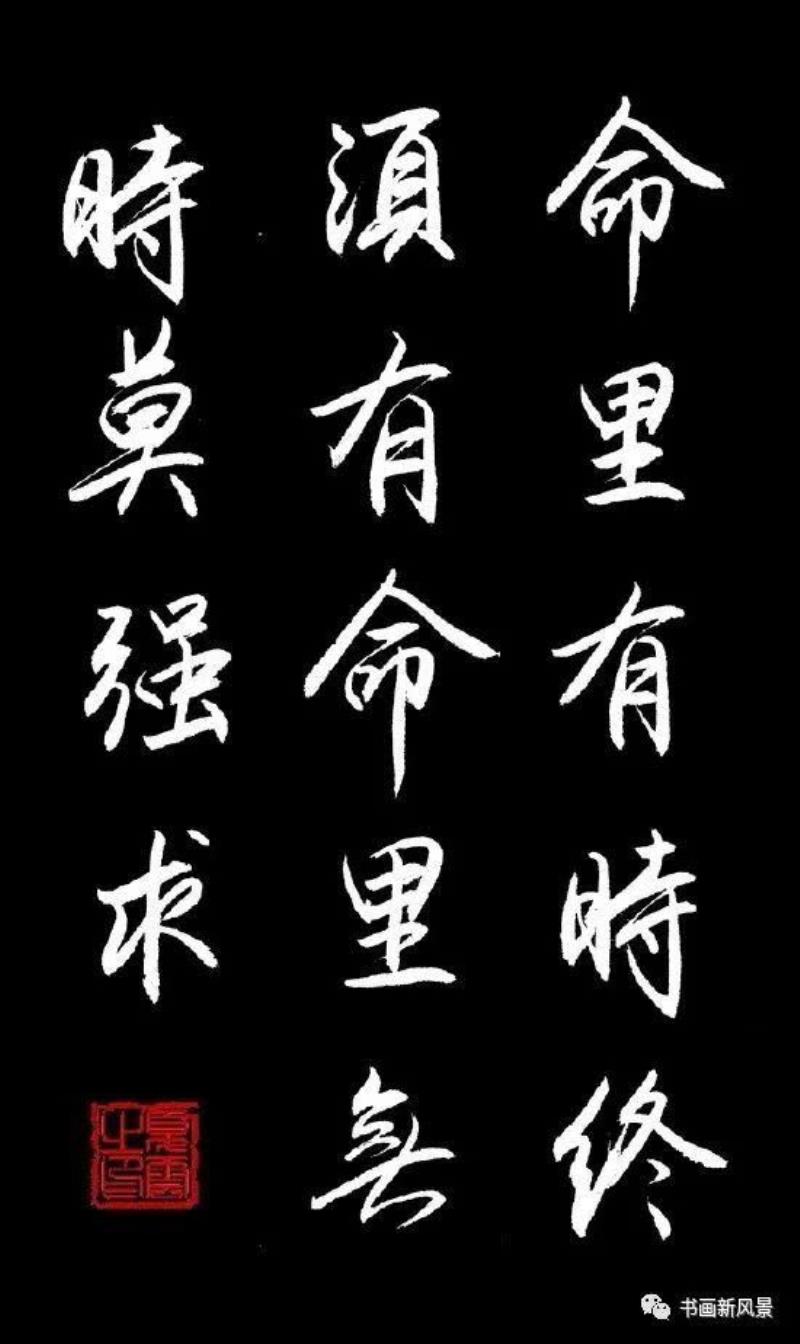 命里有時終
須有命里無
時莫强求
书画新风景